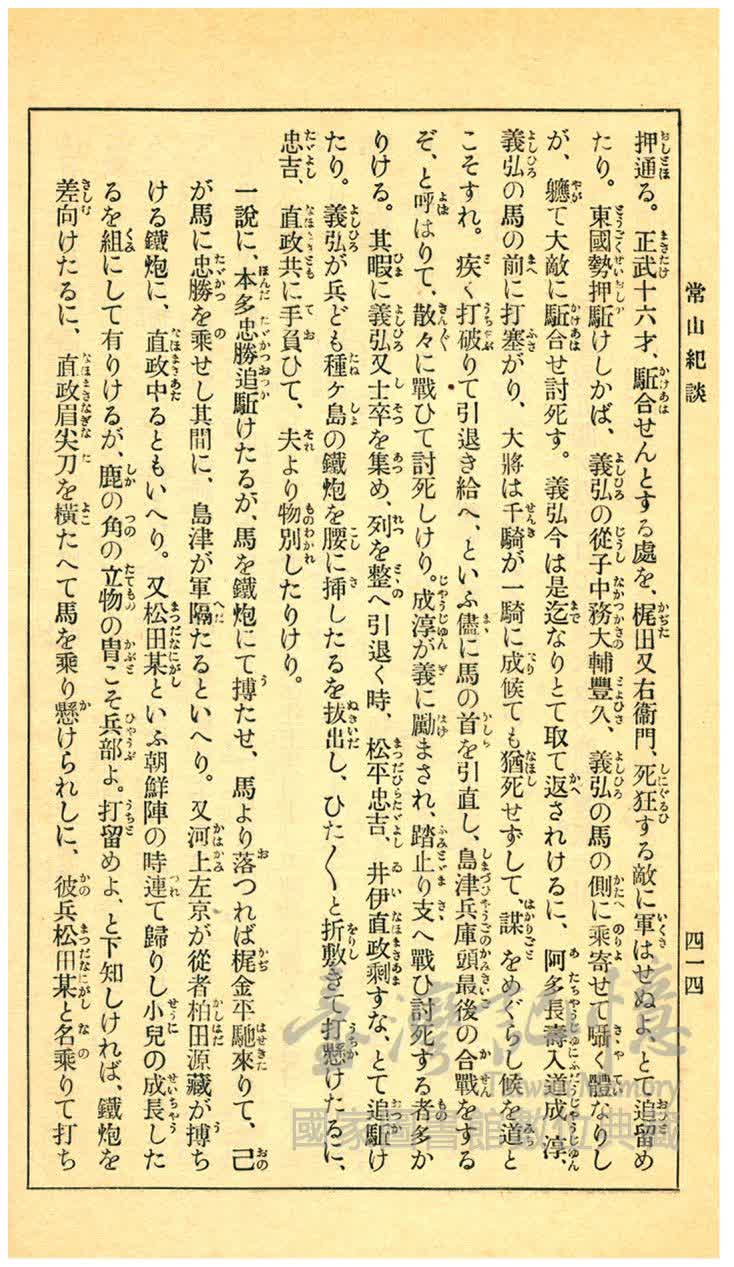 常山紀談
四一四
押通る。正武十六才、駈合せんとする處を、梶田又右衞門、死狂する敵に軍はせぬよ、とて追留め
たり。東國勢押駈けしかば、義弘の從子中務大輔豐久、義弘の馬の側に乘寄せて囁く體なりし
が、軈て大敵に駈合せ討死す。義弘今は是迄なりとて取て返されけるに、阿多長壽入道成淳、
義弘の馬の前に打塞がり、大將は千騎が一騎に成候ても猶死せずして、謀をめぐらし候を道と
こそすれ。疾く打破りて引退き給へ、といふ儘に馬の首を引直し、島津兵庫頭最後の合戰をする
ぞ、と呼はりて、散々に戰ひて討死しけり。成淳が義に勵まされ、踏止り支へ戰ひ討死する者多か
りける。其暇に義弘又士卒を集め、列を整へ引退く時、松平忠吉、井伊直政剩すな、とて追駈け
たり。義弘が兵ども種ヶ島の鐵炮を腰に揷したるを拔出し、ひた〳〵と折敷きて打懸けたるに、
忠吉、直政共に手負ひて、夫より物別したりけり。
一說に、本多忠勝追駈けたるが、馬を鐵炮にて搏たせ、馬より落つれば梶金平馳來りて、己
が馬に忠勝を乘せし其間に、島津が軍隔たるといへり。又河上左京が從者柏田源藏が搏ち
ける鐵炮に、直政中るともいへり。又松田某といふ朝鮮陣の時連て歸りし小兒の成長した
るを組にして有りけるが、鹿の角の立物の冑こそ兵部よ。打留めよ、と下知しければ、鐵炮を
差向けたるに、直政眉尖刀を橫たへて馬を乘り懸けられしに、彼兵松田某と名乘りて打ち
臺灣記憶
Taiwan Memory
國家圖書館數位典藏